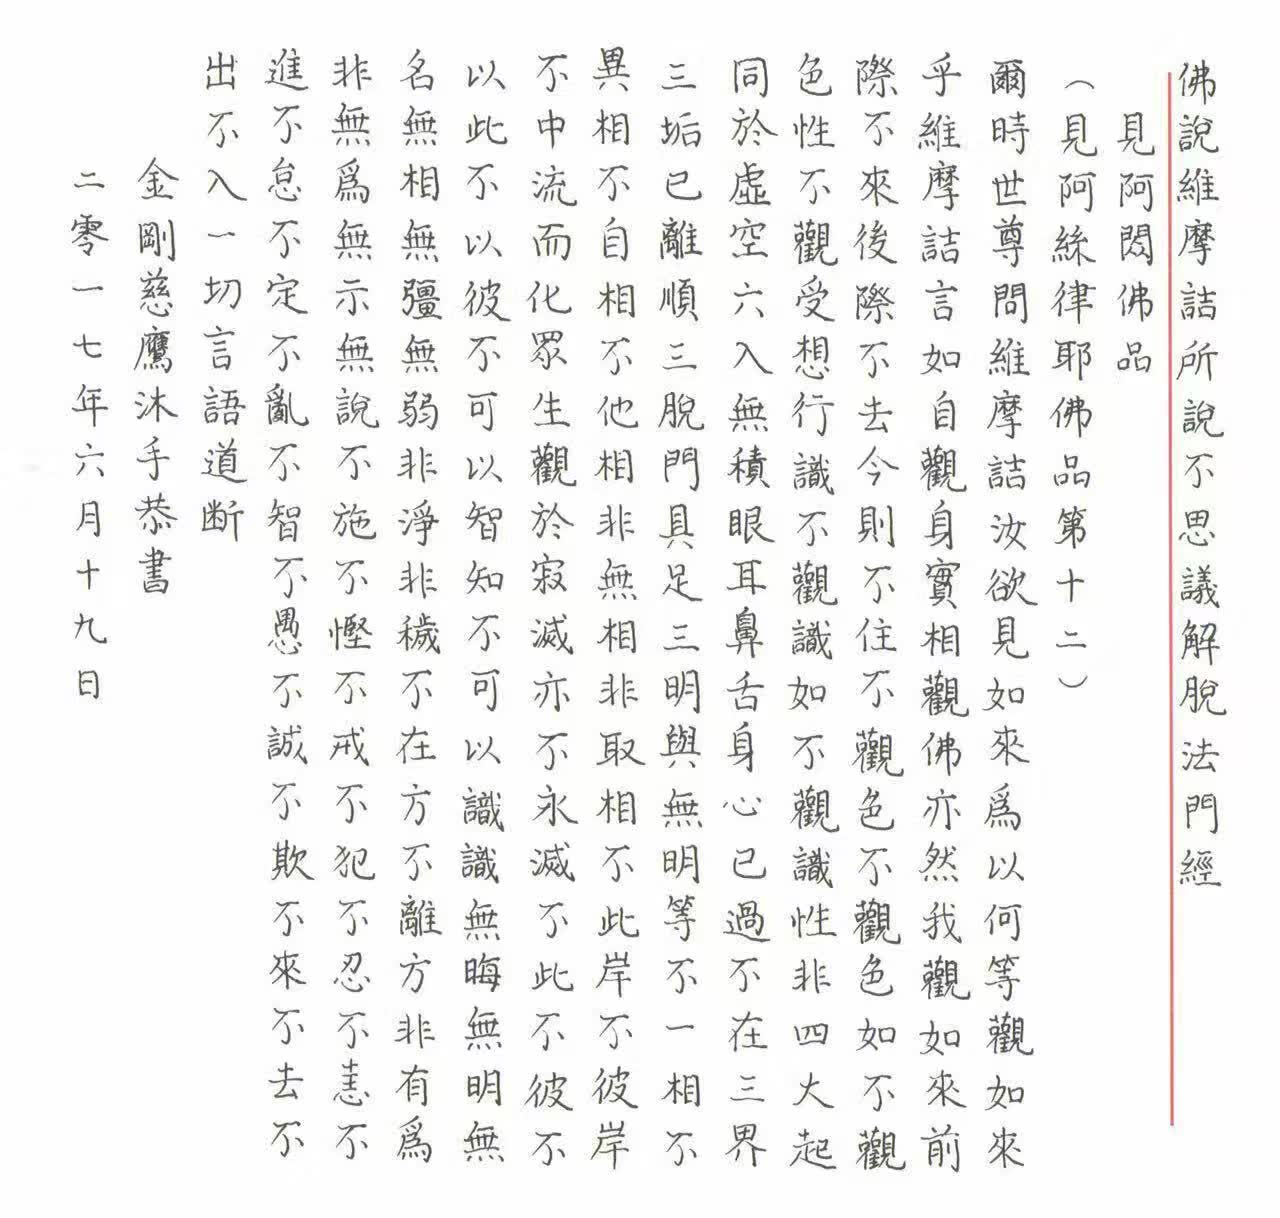 佛說維摩詰所說不思議解脫法門經
見阿閦佛品
（見阿絲律耶佛品第十二）
爾時世尊問維摩詰汝欲見如來爲以何等觀如來
乎維摩詰言如自觀身實相觀佛亦然我觀如來前
際不來後際不去今則不住不觀色不觀色如不觀
色性不觀受想行識不觀識如不觀識性非四大起
同於虛空六入無積眼耳鼻舌身心已過不在三界
三垢已離順三脫門具足三明與無明等不一相不
異相不自相不他相非無相非取相不此岸不彼岸
不中流而化眾生觀於寂滅亦不永滅不此不彼不
以此不以彼不可以智知不可以識識無晦無明無
名無相無彊無弱非淨非穢不在方不離方非有爲
非無爲無示無說不施不慳不戒不犯不忍不恚不
進不怠不定不亂不智不愚不誠不欺不來不去不
出不入一切言語道断
金剛慈鷹沐手恭書
二零一七年六月十九日